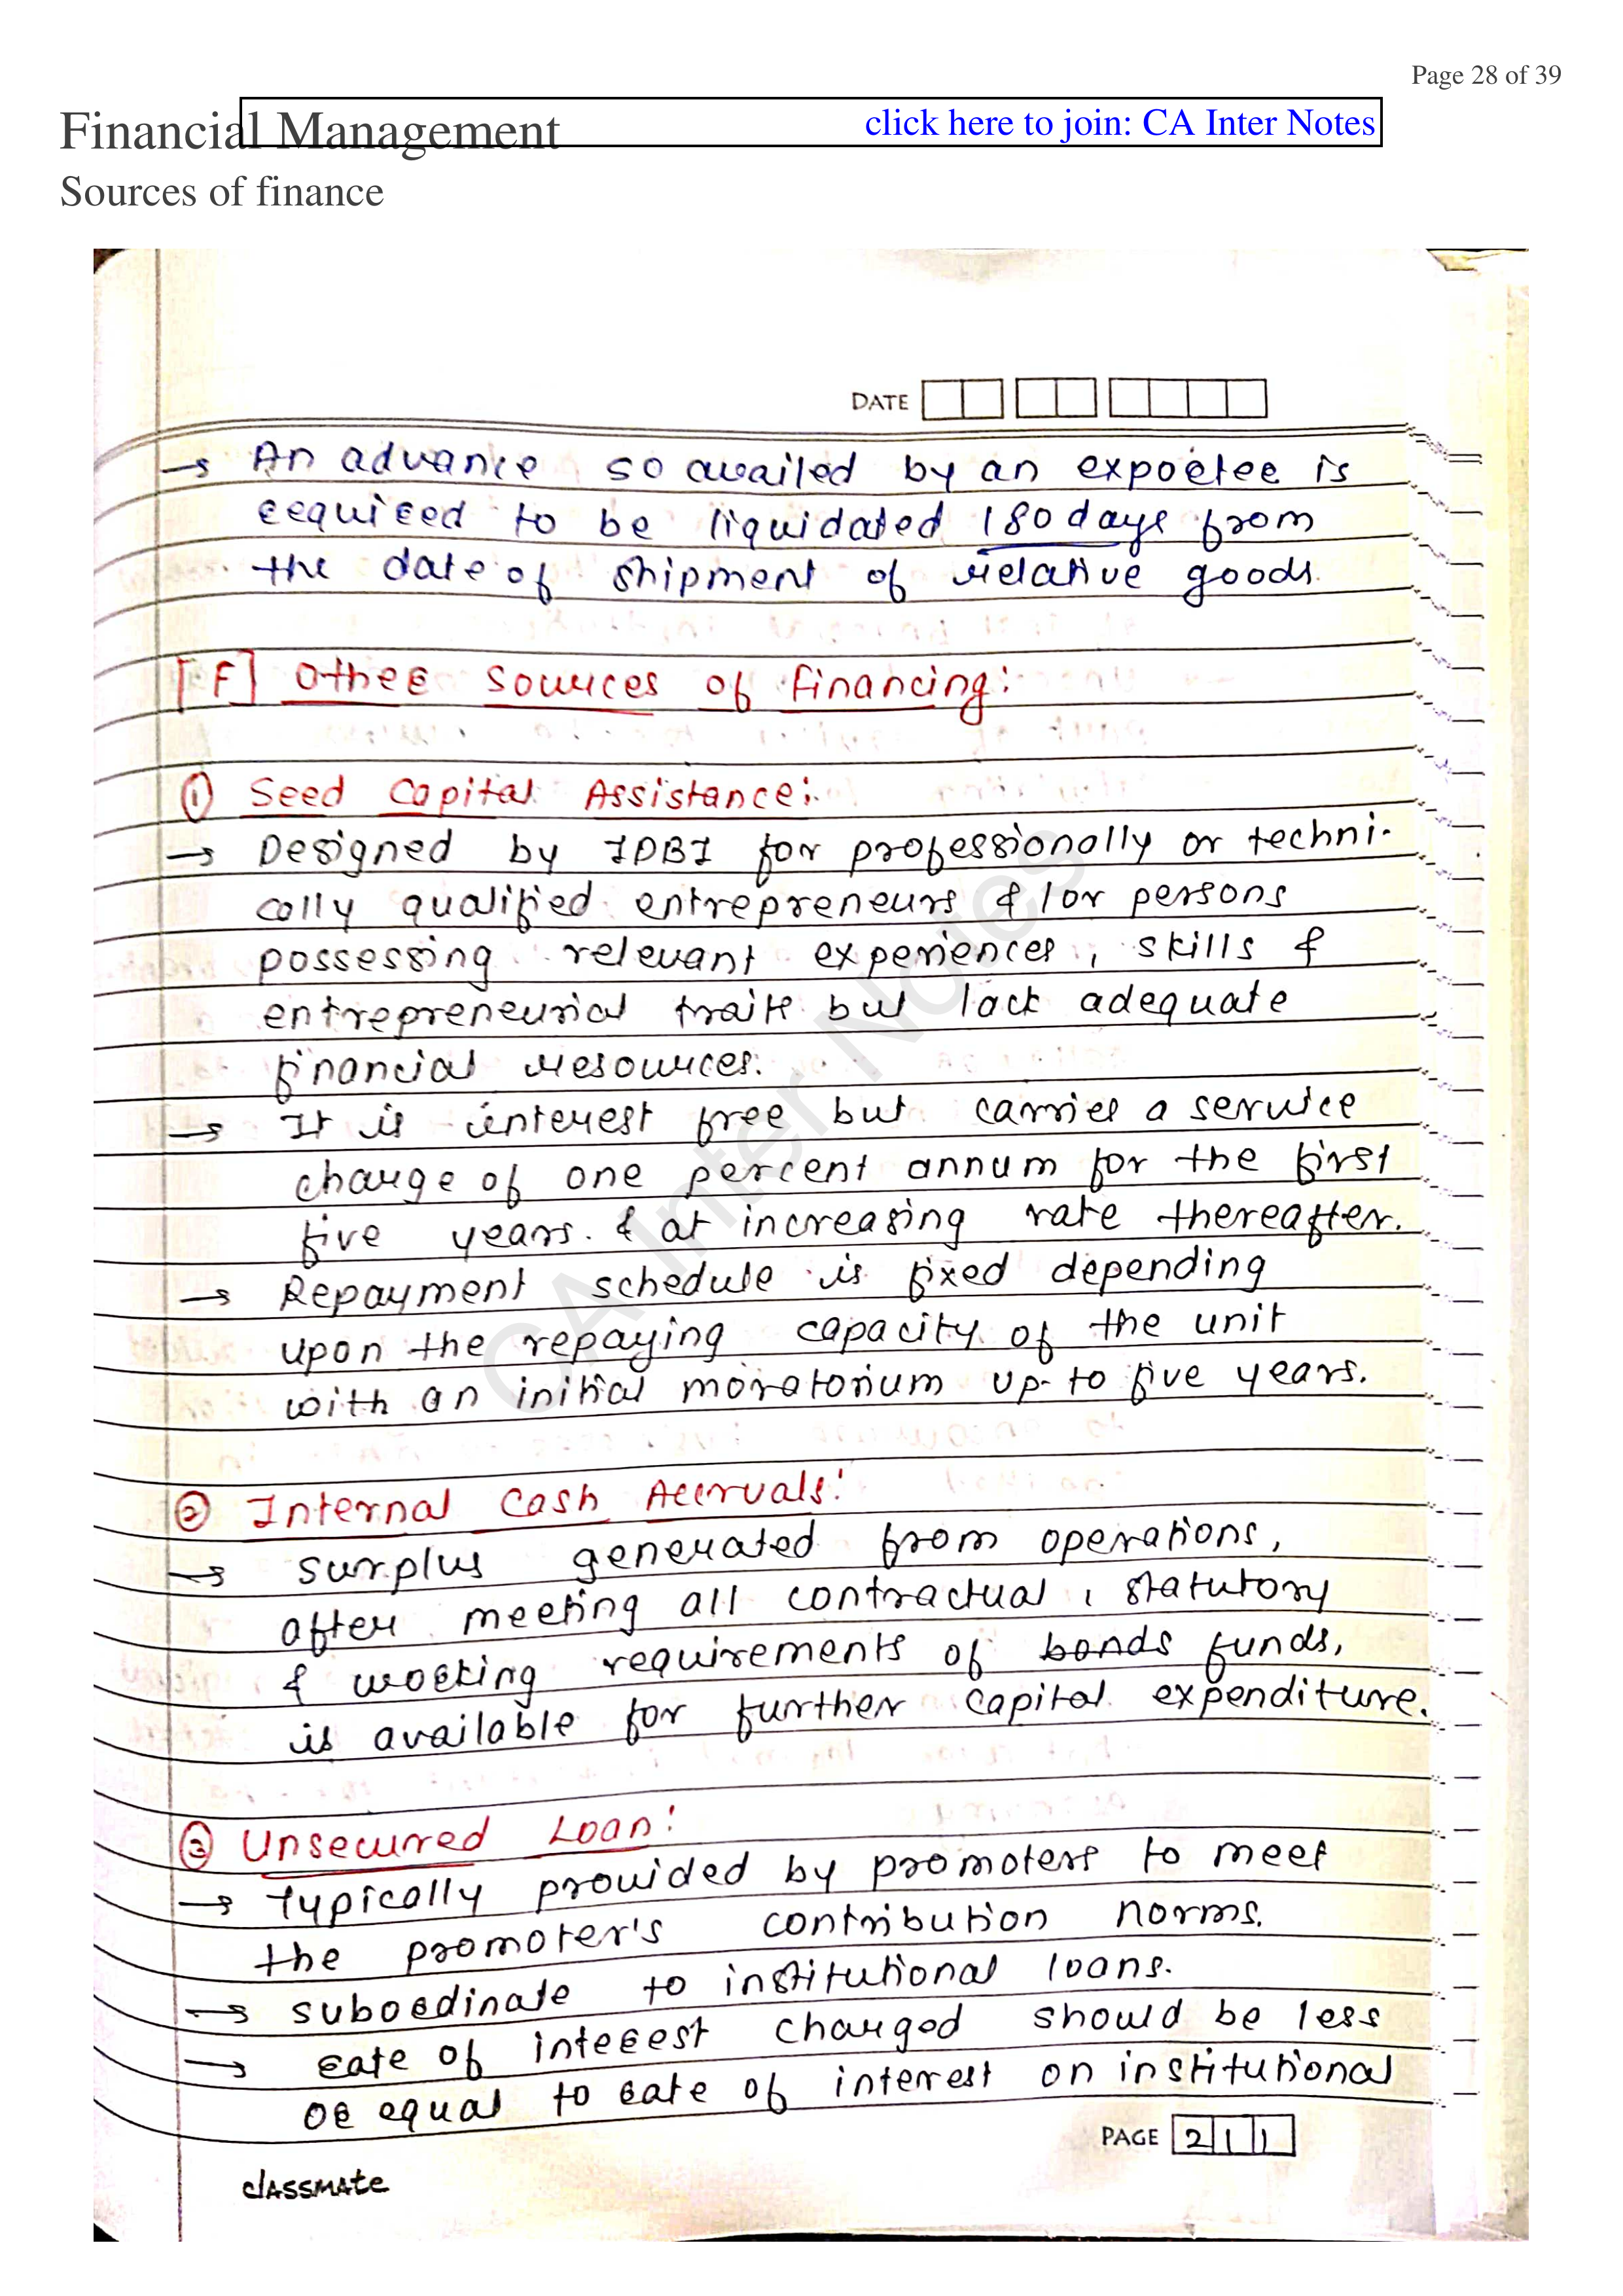 Page 28 of 39
Financial Management
click here to join: CA Inter Notes
Sources of finance
DATE
→ An advance so availed by an exporter is
required to be liquidated 180 days from
the date of shipment of relative goods.
[F] Other Sources of financing:
① Seed Capital Assistance:
→ Designed by IDBI for professionally or techni-
cally qualified entrepreneurs & /or persons
possessing relevant experiences, skills &
entrepreneurial traits but lack adequate
financial resources.
→ It is interest free but carries a service
charge of one percent annum for the first
five years. & at increasing rate thereafter.
→ Repayment schedule is fixed depending
upon the repaying capacity of the unit
with an initial moratorium up-to five years.
② Internal Cash Accruals:
→ surplus generated from operations,
after meeting all contractual, statutory
& working requirements of bonds funds,
is available for further capital expenditure.
③ Unsecured Loan:
→ Typically provided by promoters to meet
the promoter's contribution norms.
→ subordinate to institutional loans.
→ rate of interest charged should be less
or equal to rate of interest on institutional
PAGE 211
classmate
CA Inter Notes